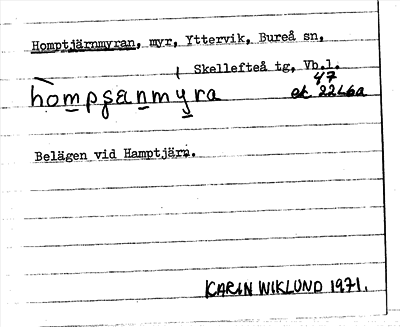 Homptjärnmyran, myr, Yttervik, Bureå sn,
Skellefteå tg, Vb.l.
47
hompsanmyra ek 22L6a
Belägen vid Hamptjärn.
KARIN WIKLUND 1971.